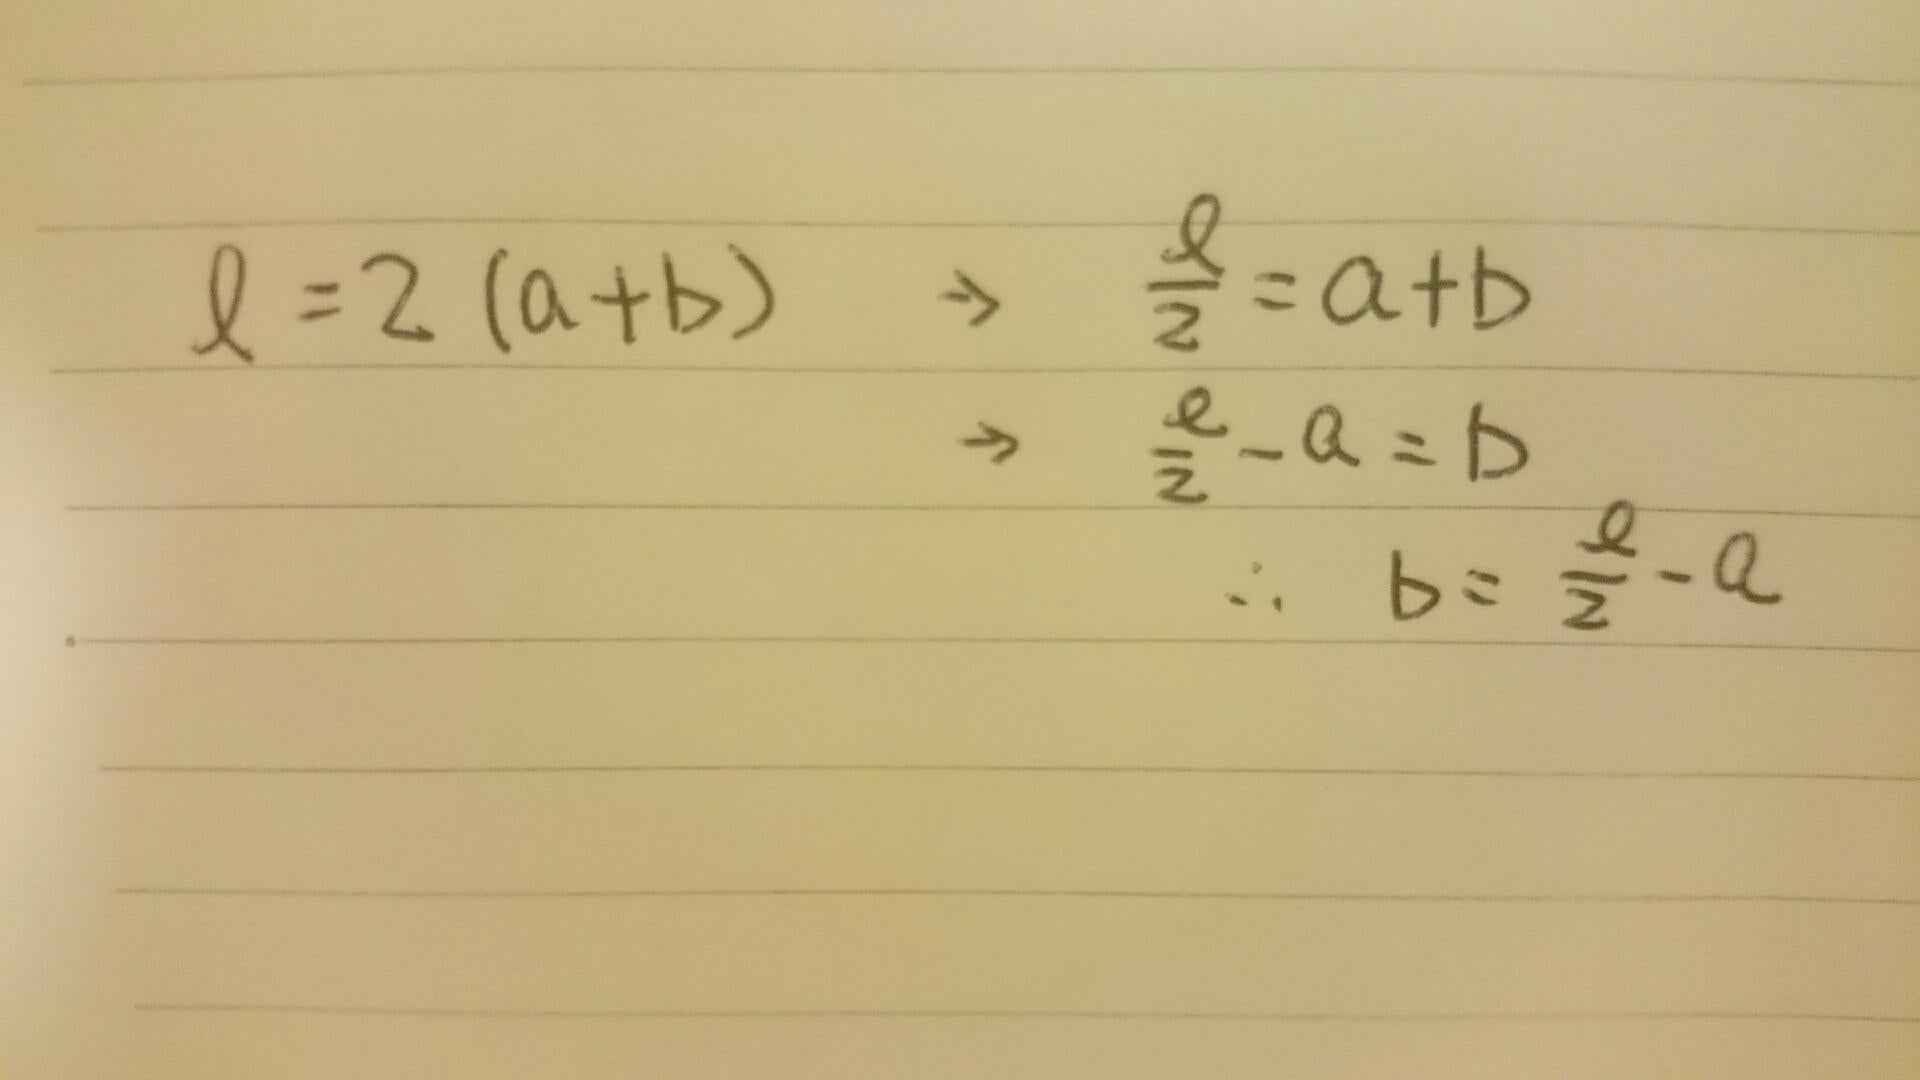 ℓ = 2 (a+b) → ℓ/2 = a+b
→ ℓ/2 - a = b
∴ b = ℓ/2 - a